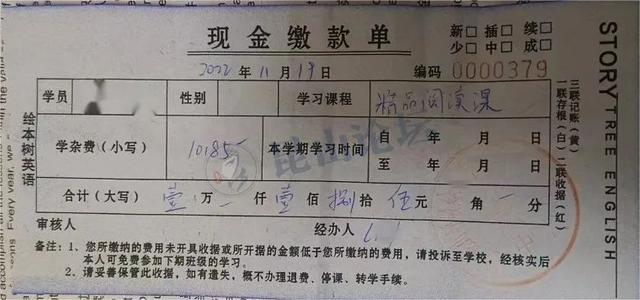 现金缴款单
新□ 插□ 续□
少□ 中□ 成□
2022 年 11 月 19 日
编码 0000379
学员 性别 学习课程 精品阅读课
学杂费(小写) 10185 本学期学习时间 自 年 月 日
至 年 月 日
合计(大写) 壹 万 仟 壹 佰 捌 拾 伍 元 角 分
审核人 经办人
备注:1、您所缴纳的费用未开具收据或所开据的金额低于您所缴纳的费用,请投诉至学校,经核实后
本人可免费参加下期班级的学习。
2、请妥善保管此收据,如有遗失,概不办理退费、停课、转学手续。
绘本树英语
三联记账(黄)
一联存根(白)二联收据(红)
STORY TREE ENGLISH
昆山论坛